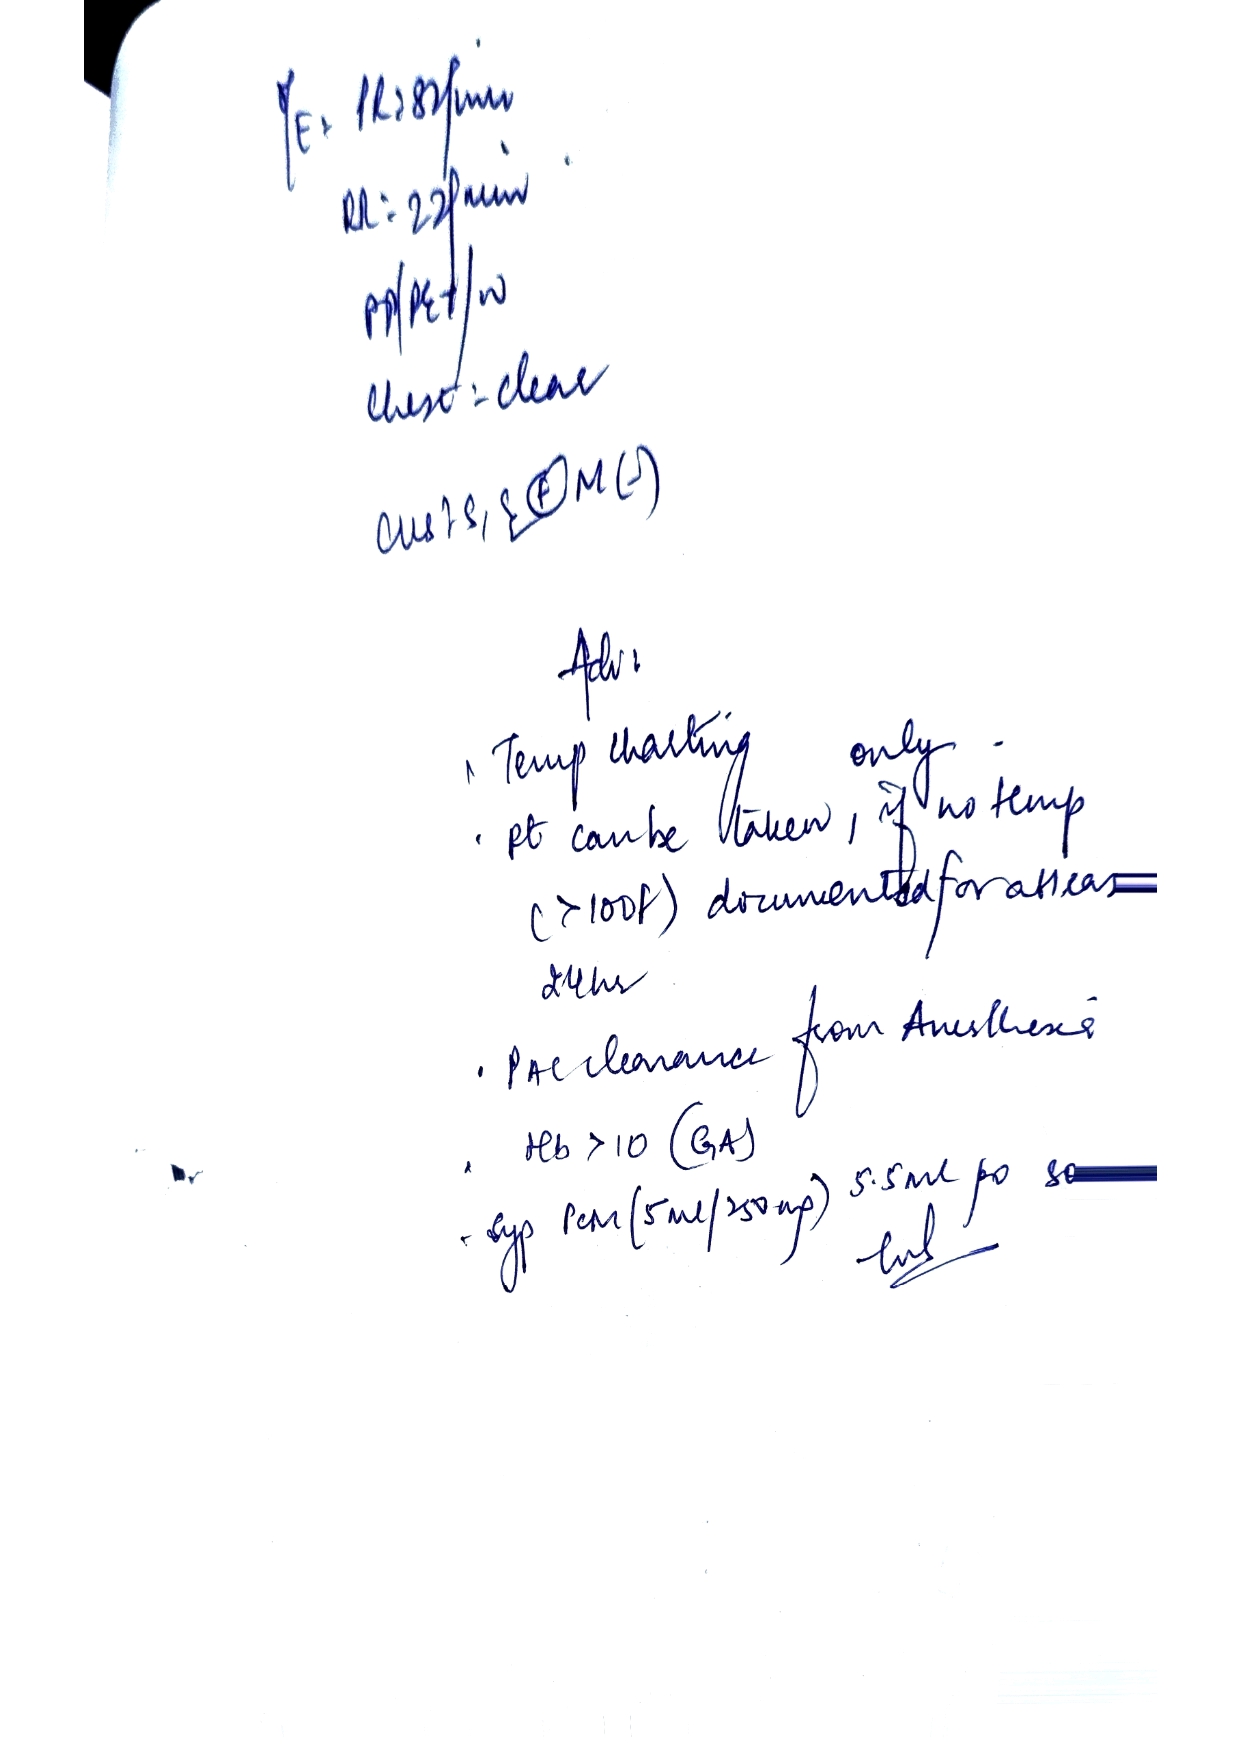 PR: 82/min
RR:- 22/min
PP/PE+/w
Chest:- clear
M(-)
Adv:
Temp charting only.
pt can be taken, if no temp
(>100F) documented for atleas
24hr
PAC clearance from Anesthesia
Hb >10 (GA)
Syp PCM (5ml/250mg) 5.5ml po so
Dr